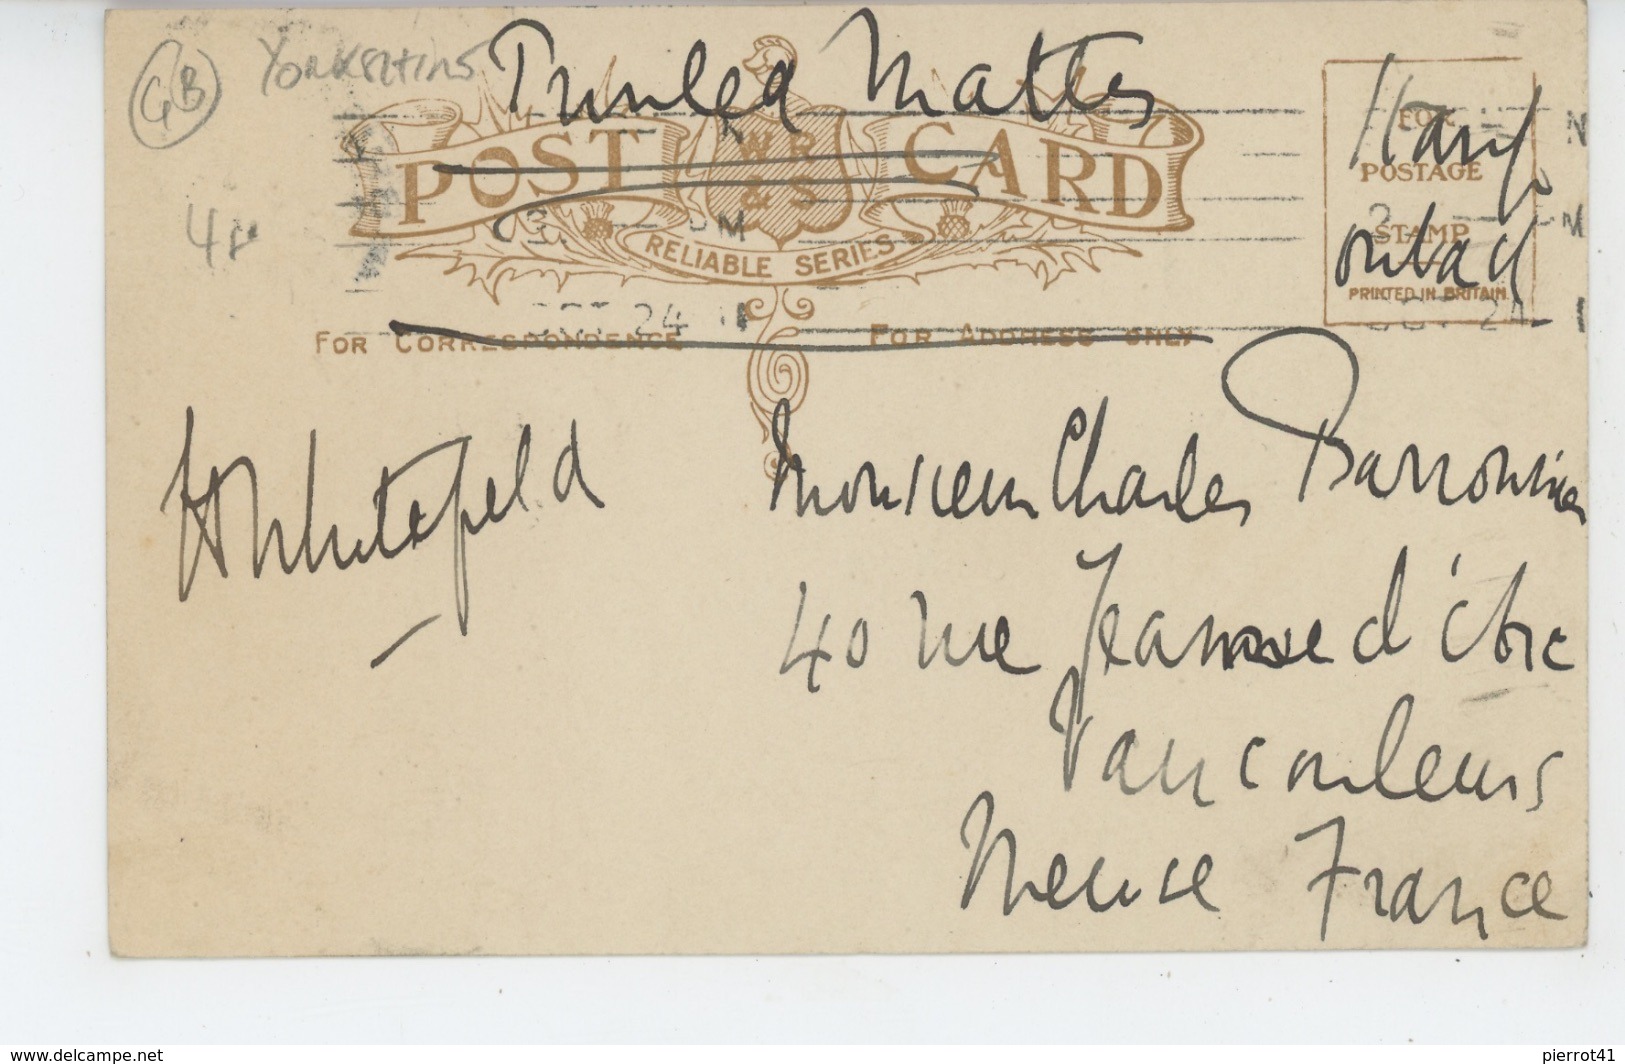 GB YORKSHIRE Printed Matter
POST W.R. & S. CARD
RELIABLE SERIES
4
FOR CORRESPONDENCE FOR ADDRESS ONLY
FOR
POSTAGE
STAMP
PRINTED IN BRITAIN
Stamp
only
OCT 24 11
Whitefield
Monsieur Charles
40 rue Jeanne d'Arc
Vaucouleurs
Meuse France
www.delcampe.net pierrot41